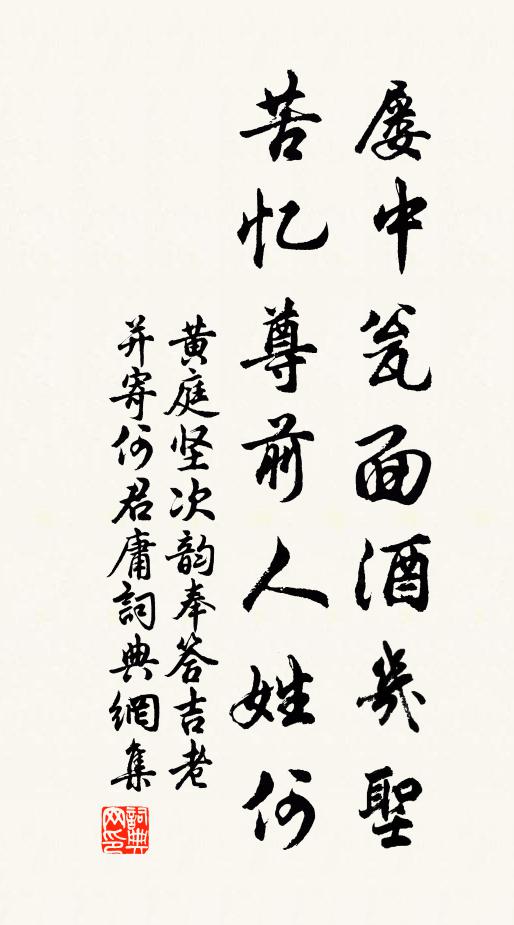 屡中瓮面酒幾聖
苦忆尊前人姓何
黄庭坚次韵奉答吉老
并寄何君庸詞典網集
詞典
网印